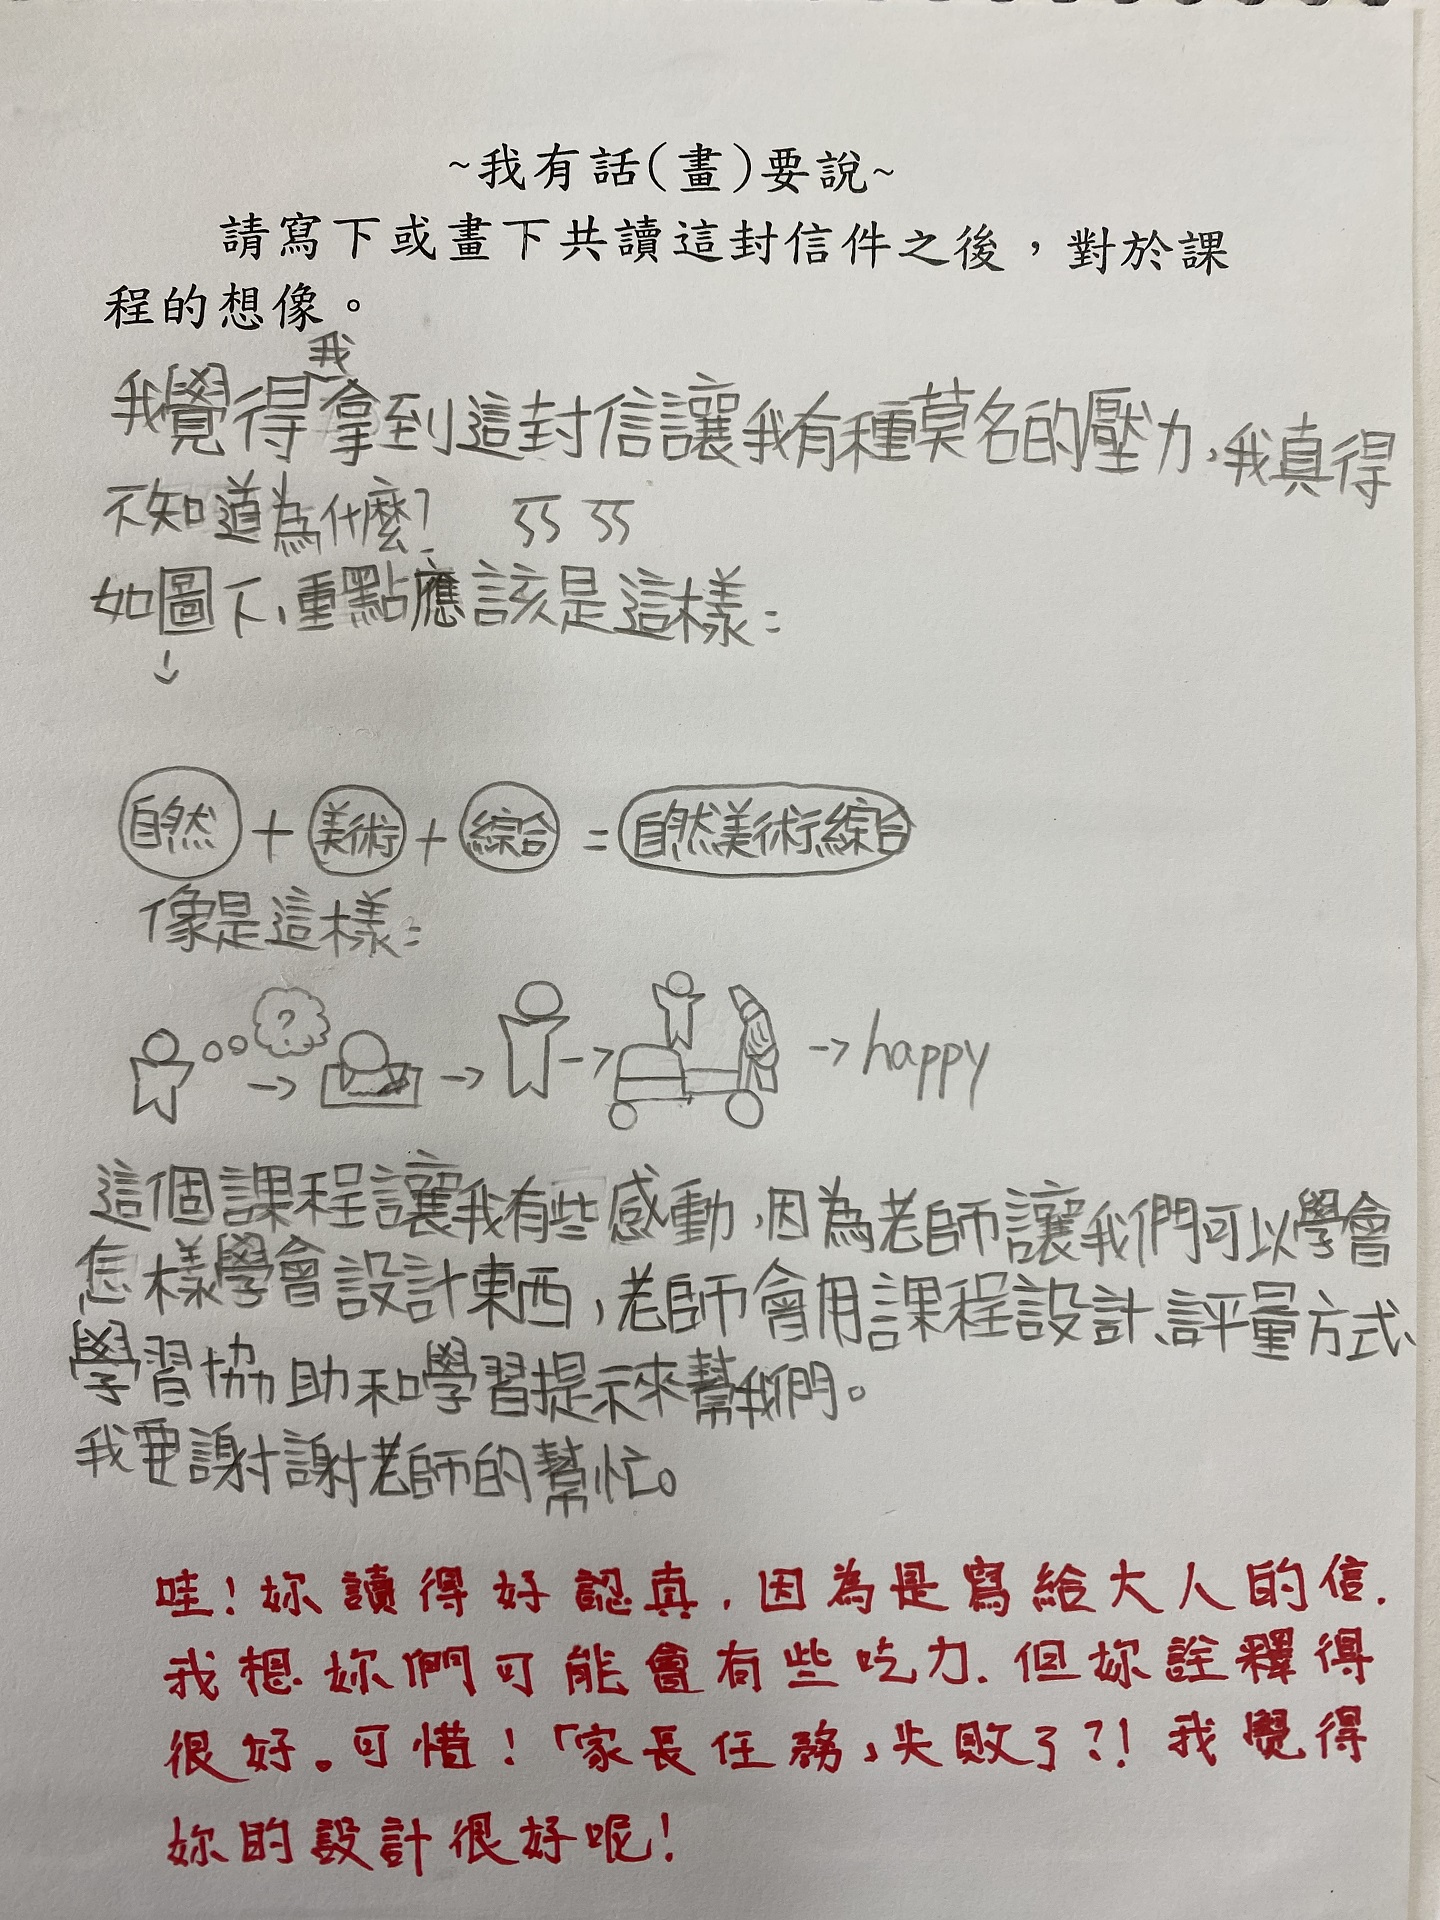 ~我有話(畫)要說~
請寫下或畫下共讀這封信件之後，對於課
程的想像。
我
我覺得拿到這封信讓我有種莫名的壓力，我真得
不知道為什麼？ ㄎㄎ
如圖下，重點應該是這樣：
↓
自然 + 美術 + 綜合 = 自然美術綜合
像是這樣：
? → → → → happy
這個課程讓我有些感動，因為老師讓我們可以學會
怎樣學會設計東西，老師會用課程設計、評量方式、
學習協助和學習提示來幫我們。
我要謝謝老師的幫忙。
哇！妳讀得好認真，因為是寫給大人的信.
我想妳們可能會有些吃力.但妳詮釋得
很好。可惜！「家長任務」失敗了?！我覺得
妳的設計很好呢！